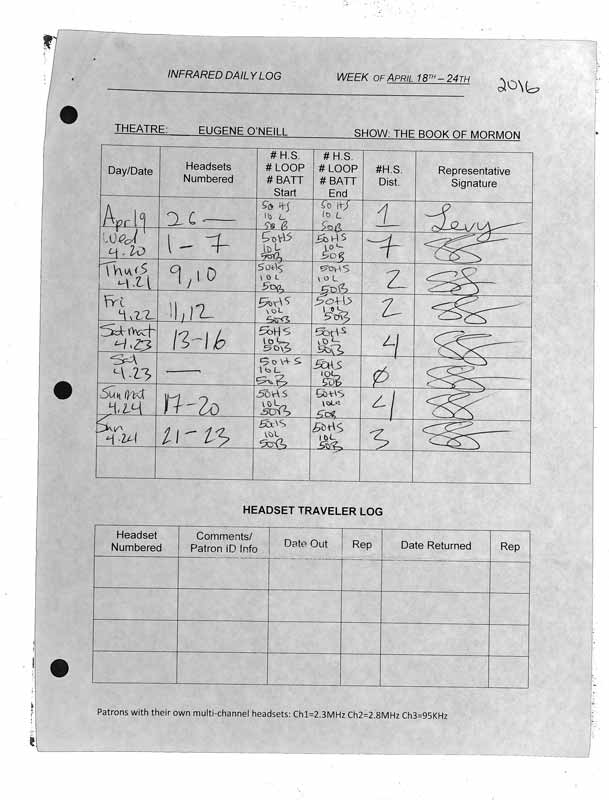 INFRARED DAILY LOG WEEK OF APRIL 18TH – 24TH 2016
THEATRE: EUGENE O'NEILL SHOW: THE BOOK OF MORMON
Day/Date Headsets Numbered # H.S. # LOOP # BATT Start # H.S. # LOOP # BATT End #H.S. Dist. Representative Signature
Apr 19 26 — 50 HS 10 L 50 B 50 HS 10 L 50B 1 Levy
Wed 4.20 1 – 7 50HS 10L 50B 50HS 10L 50B 7
Thurs 4.21 9, 10 50HS 10L 50B 50HS 10L 50B 2
Fri 4.22 11, 12 50HS 10L 50B 50HS 10L 50B 2
Sat mat 4.23 13-16 50HS 10L 50B 50HS 10L 50B 4
Sat 4.23 — 50HS 10L 50B 50HS 10L 50B Ø
Sun mat 4.24 17-20 50HS 10L 50B 50HS 50B 4
Sun 4.24 21-23 50HS 10L 50B 50HS 10L 50B 3
HEADSET TRAVELER LOG
Headset Numbered Comments/ Patron ID Info Date Out Rep Date Returned Rep
Patrons with their own multi-channel headsets: Ch1=2.3MHz Ch2=2.8MHz Ch3=95KHz